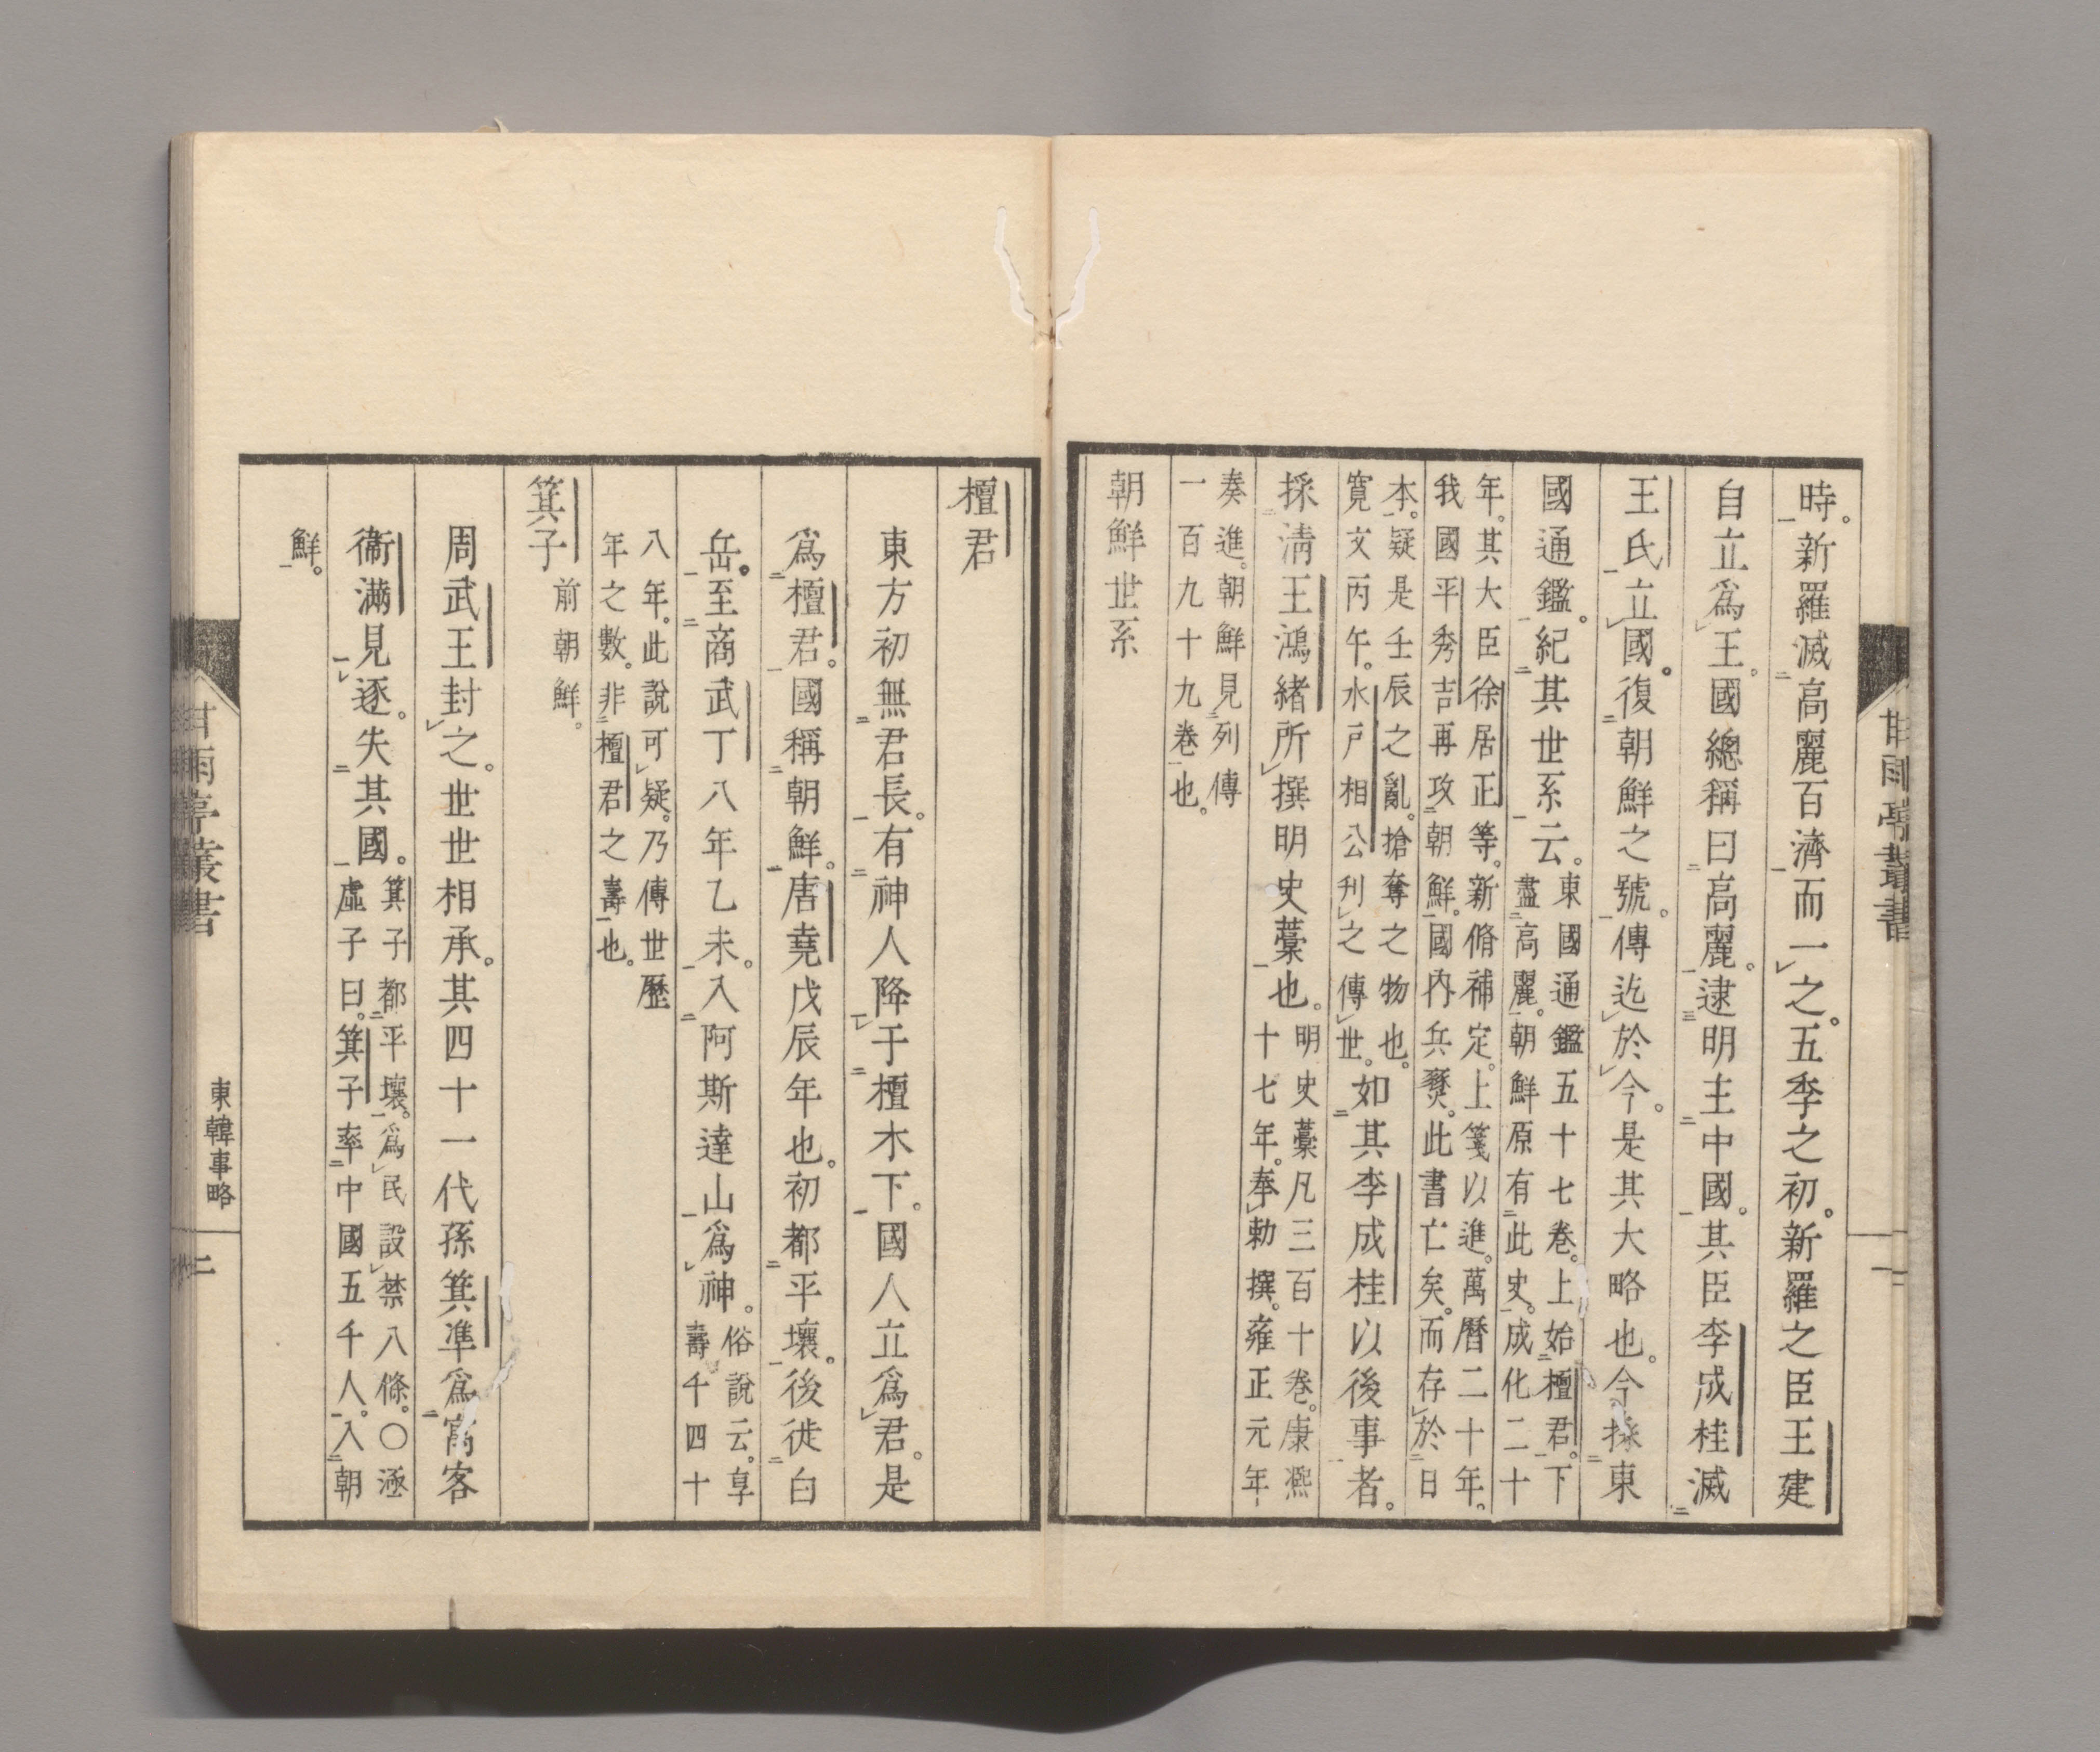 甘雨亭叢書
時。新羅滅高麗百濟而一之。五季之初。新羅之臣王建
自立爲王。國總稱曰高麗。逮明主中國。其臣李成桂滅
王氏立國。復朝鮮之號。傳迄於今。是其大略也。今採東
國通鑑。紀其世系云。
東國通鑑五十七卷。上始檀君。下
盡高麗。朝鮮原有此史。成化二十
年。其大臣徐居正等。新脩補定。上箋以進。萬曆二十年。
我國平秀吉再攻朝鮮。國內兵燹。此書亡矣。而存於日
本。疑是壬辰之亂。搶奪之物也。
寛文丙午。水戸相公刋之傳世。
如其李成桂以後事者。
採淸王鴻緒所撰明史藁也。
明史藁凡三百十卷。康熙
十七年。奉勅撰。雍正元年
奏進。朝鮮見列傳
一百九十九卷也。
朝鮮世系
檀君
東方初無君長。有神人降于檀木下。國人立爲君。是
爲檀君。國稱朝鮮。唐堯戊辰年也。初都平壤。後徙白
岳。至商武丁八年乙未。入阿斯達山爲神。
俗說云。享
壽千四十
八年。此說可疑。乃傳世歷
年之數。非檀君之壽也。
箕子
前朝鮮。
周武王封之。世世相承。其四十一代孫箕準爲寓客
衞滿見逐。失其國。
箕子都平壤。爲民設禁八條。○涵
虛子曰。箕子率中國五千人。入朝
鮮。
甘雨亭叢書
東韓事略
二